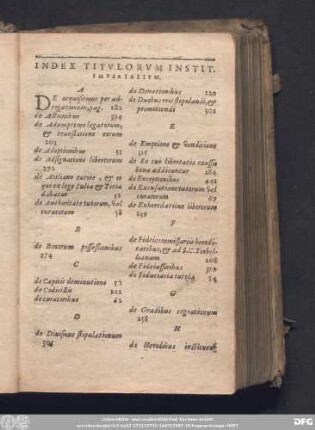 INDEX TITVLORVM INSTIT.
IMPERIALIVM.
A
DE acquisitione per ad-
rogationem, pag. 282
de Actionibus 394
de Ademptione legatorum,
& translatione eorum
203
de Adoptionibus 51
de Adsignatione libertorum
272
de Atiliano tutore, & eo
qui ex lege Iulia & Titia
dabatur 52
de Authoritate tutorum, vel
curatorum 58
B
de Bonorum possessionibus
274
C
de Capitis deminutione 52
de Codicillis 222
de curatoribus 62
D
de Divisione stipulationum
306
de Donationibus 120
de Duobus reis stipulandi, &
promittendi 302
E
de Emptione & venditione
325
de Eo cui libertatis caussa
bona addicuntur 284
de Exceptionibus 442
de Excusatione tutorum vel
curatorum 67
de Exheredatione liberorum
148
F
de Fideicommissariis heredi-
tatibus, & ad S.C. Trebel-
lianum 208
de Fideiussoribus 319
de Fiduciaria tutela 54
G
de Gradibus cognationum
258
H
de Heredibus instituendis